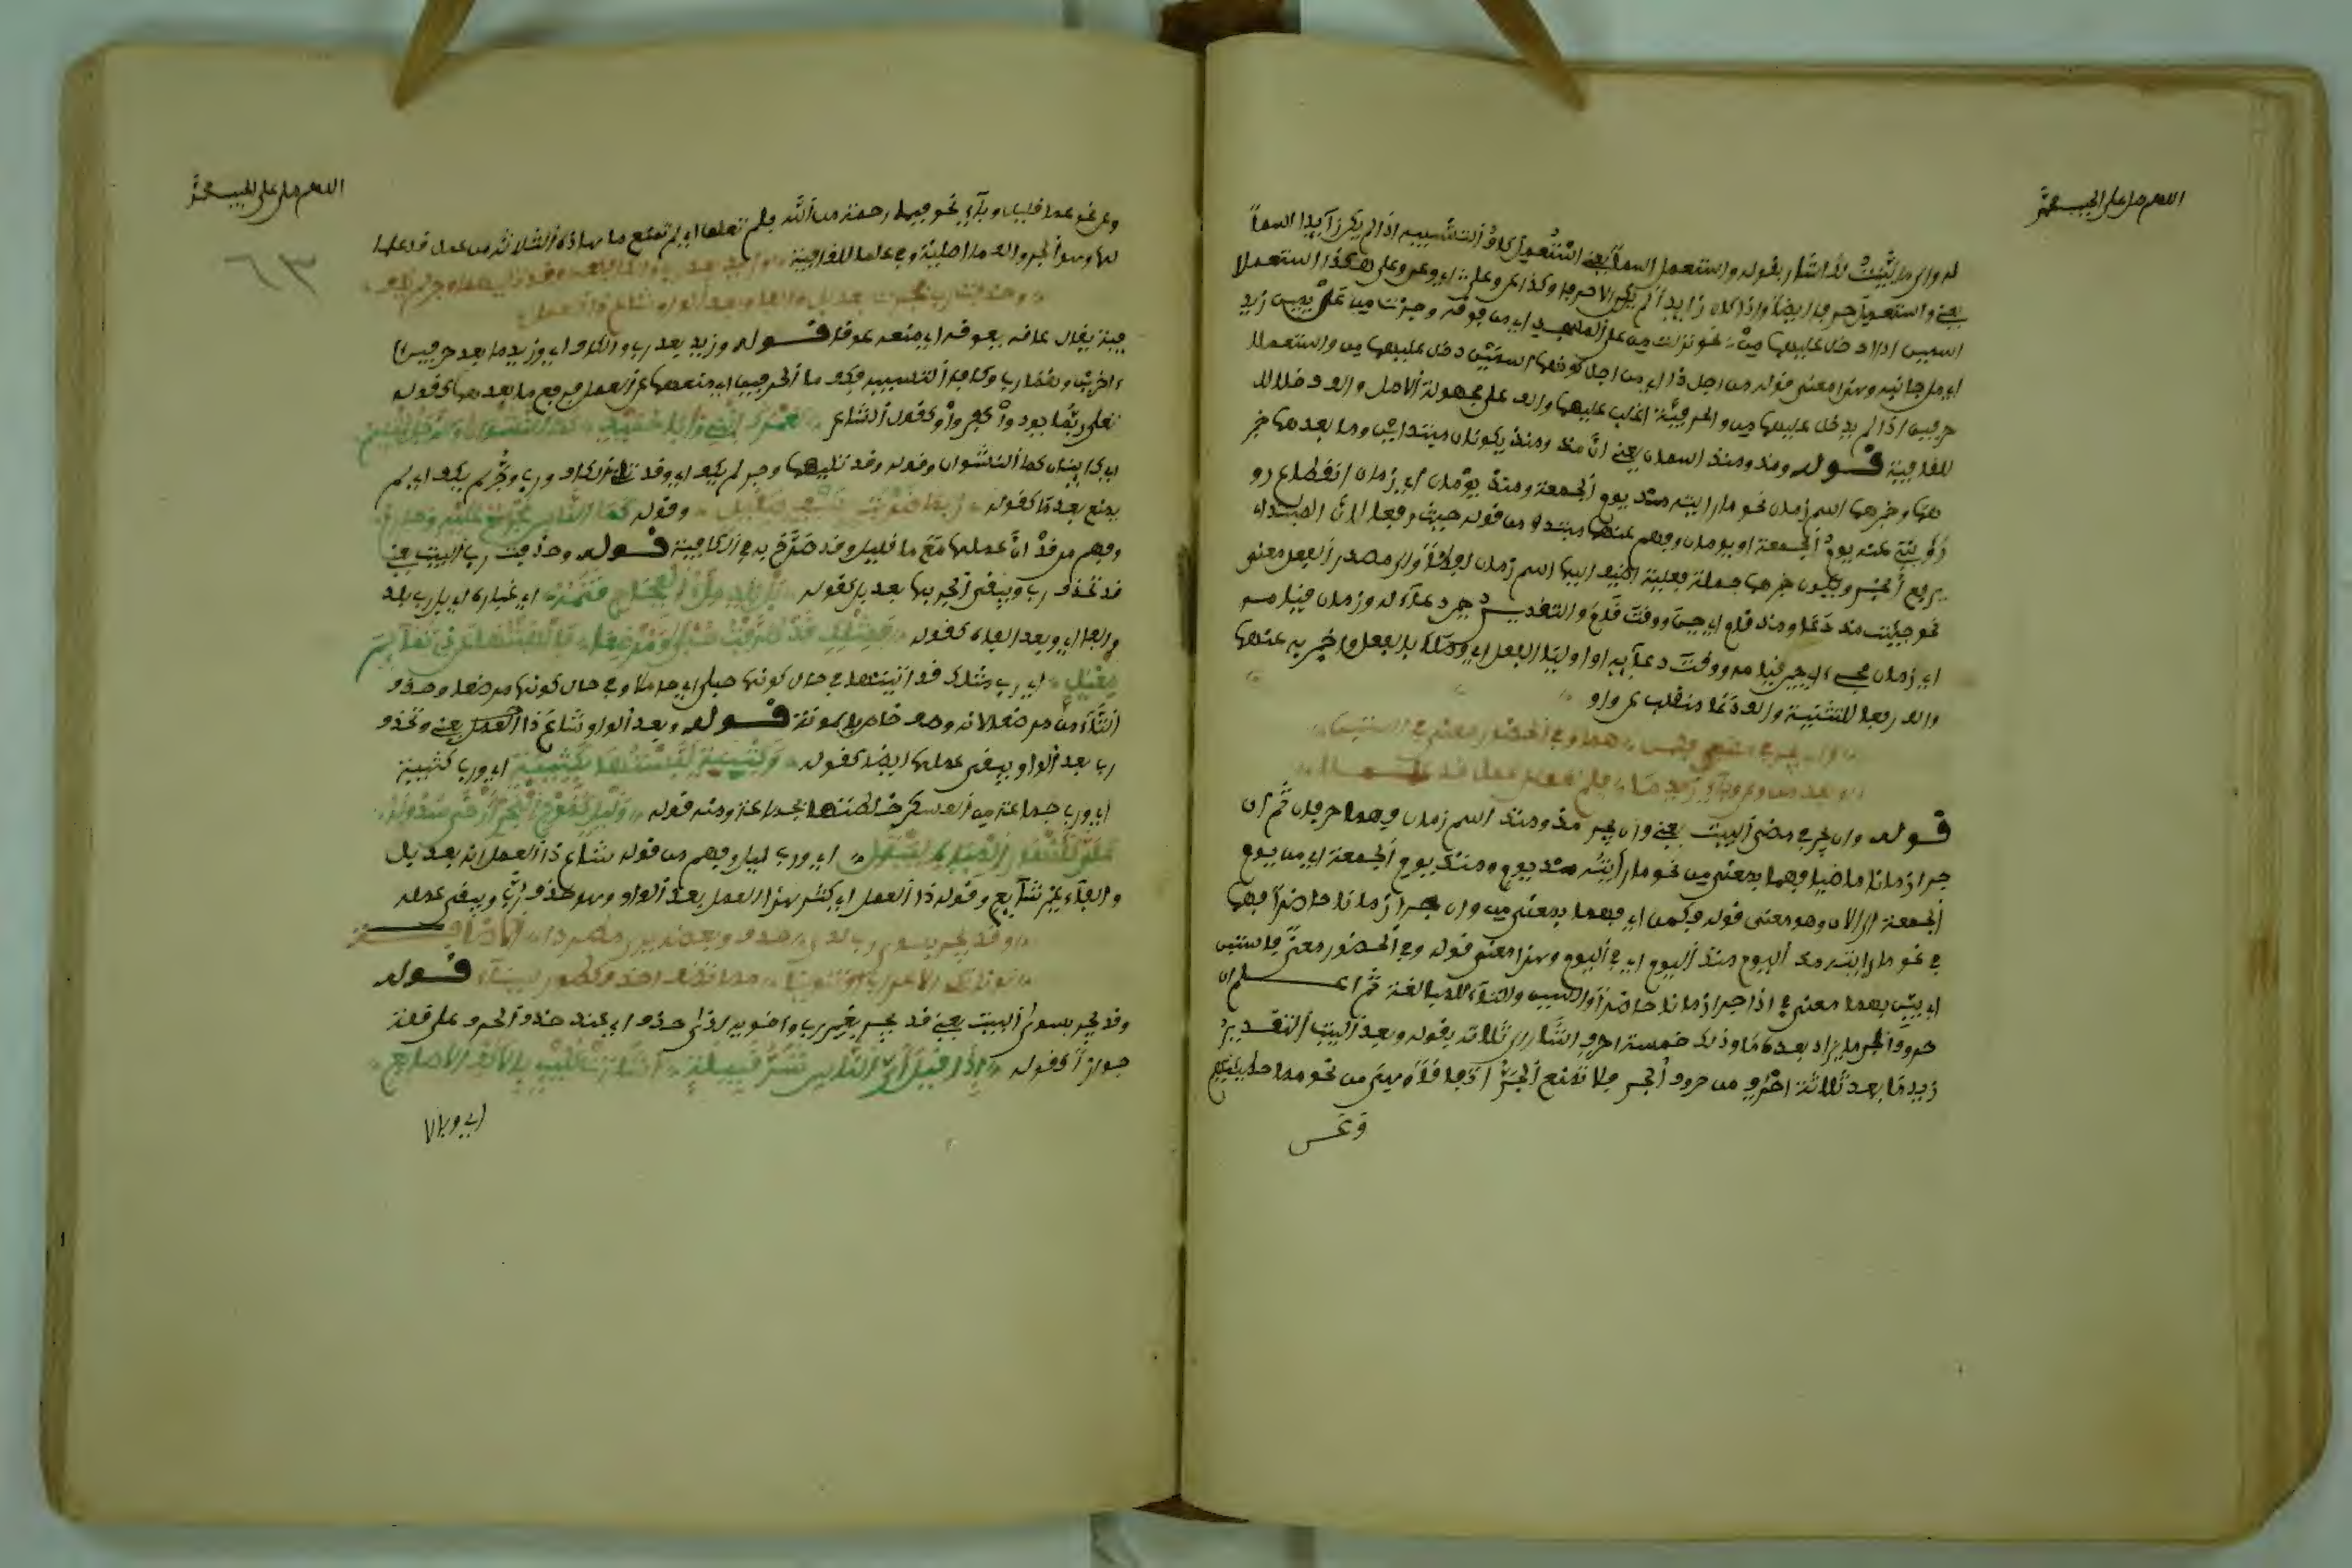 اللهم صل على الحبيب محمد
له واى ما بينت لك اشار بقوله واستعمل اسما يعني استعمل كاف التشبيه اذا لم يكن زايدا اسما
يعني واستعمل حرفا ايضا واذا كان زايدا لم يكن الا حرفا وكذا عن وعلى اي وعن وعلى هكذا استعملا
اسمين اذا دخل عليهما من نحو نزلت من على المسجد اي من فوقه وجزت من عن يمين زيد
اي من جانبه وهذا معنى قوله من اجل ذا اي من اجل كونهما اسمين دخل عليهما من واستعملا
حرفين اذا لم يدخل عليهما من والحرفية اغلب عليهما والف على مجهولة الاصل والف دخلا
للقافية قوله ومذ ومنذ اسمان يعني ان مذ ومنذ يكونان مبتدأين وما بعدهما خبر
هما وخبرهما اسم زمان نحو ما رايته منذ يوم الجمعة ومنذ يومان اي زمان انقطاع رو
ءيته عنه يوم الجمعة او يومان وفهم عنهما مبتدا من قوله حيث رفعا لان المبتداء
يرفع الخبر ويكون خبرهما جملة فعلية اضيف اليها اسم زمان اولا والى مصدر الفعل معنى
نحو جيئت مذ دعا ومنذ قام اي حين ووقت قام والتقدير حين دعاءه وزمان قيامه
اي زمان مجيء اي حين قيامه ووقت دعايه اوا وليا الفعل اي وصلا بالفعل واخبر به عنهما
والف رفعا للتثنية والف دعا منقلب عن واو
وان يجرا في مضي فكمن هما وفي الحضور معنى في استبن
وبعد من وعن وباء زيد ما فلم تعق عن عمل قد علما
قوله وان يجرا في مضى البيت يعني وان يجر مذ ومنذ اسم زمان فهما حرفان ثم ان
جرا زمانا ماضيا فهما بمعنى من نحو ما رايته منذ يوم ومنذ يوم الجمعة اي من يوم
الجمعة الى الان وهو معنى قوله فكمن اي فهما بمعنى من وان جرا زمانا حاضرا فهما
في نحو ما رايته مذ اليوم منذ اليوم اي في اليوم وهذا معنى قوله وفي الحضور معنى في استبن
اي بين بهما معنى في اذا جرا زمانا حاضرا والسين والتاء للمبالغة ثم اعلم ان
حروف الجر ما يزاد بعده ما وذلك خمسة احرف اشار الى ثلاثة بقوله وبعد البيت التقدير
زيد ما بعد ثلاثة احرف من حروف الجر فلا تمنع الجر اذ ما قلاه من نحو مما خطيئتهم
وعن
اللهم صل على الحبيب محمد
٦٣
وعن نحو عما قليل وباء نحو فبما رحمة من الله فلم تعق اي لم تمنع ما هاذه الثلاثة من عمل قد علما
لها وهو الجر والف ما اصلية وفي علما للقافية وزيد بعد رب والكاف فكف وقد تليهما وجر لم يكف
وحذفت رب فجرت بعد بل والفا وبعد الواو شاع ذا العمل
فية يقال عاقه يعوقه اي منعه عوقا قوله وزيد بعد رب والكاف اي وزيد ما بعد حرفين
اخرين وهما رب وكاف التشبيه فكف ما الحرفين اي منعهما عن العمل فرفع ما بعدهما كقوله
تعلى ربما يود والكفروا وكقول الشاعر لعمرك انني وابا حميد كما النشوان والرجل الحليم
اي كاينان كما النشوان وقوله وقد تليهما وجر لم يكف اي وقد تلي الكاف ورب وجر لم يكف اي لم
يمنع بعد ما كقوله ربما ضربة بسيف صقيل وقوله كما الناس مجروم عليه وجارم
وفهم من قد ان عملهما مع ما قليل وقد صرح به في الكافية قوله وحذفت رب البيت يعني
قد تحذف رب ويبقى الجر بها بعد بل كقوله بل بلد ملء الفجاج قتمه اي غباره اي بل رب بلد
والفا اي وبعد الفاء كقوله فمثلك قد طرقت حبلى ومرضعا فالهيتها عن ذي تمائم
مغيل اي رب مثلك قد اتيتها في حال كونها حبلى اي حاملا وفي حال كونها مرضعا وحذف
التاء من مرضعا لانه وصف خاص بالمونثة قوله وبعد الواو شاع ذا العمل يعني وتحذف
رب بعد الواو ويبقى عملها ايضا كقوله وكتيبة لبستها بكتيبة اي ورب كتيبة
اي ورب جماعة من العسكر خلطتها بجماعة ومنه قوله وليل كموج البحر ارخى سدوله
علي بانواع الهموم ليبتلي اي ورب ليل وفهم من قوله شاع ذا العمل انه بعد بل
والفاء غير شايع وقوله ذا العمل اي كثر هذا العمل بعد الواو وهو حذف رب ويبقى عمله
وقد يجر بسوى رب لدى حذف وبعضه يرى مطردا
قوله
وقد يجر بسوى البيت يعني قد يجر بغير رب واخويه لدى حذف اي عند حذف الحرف على قلة
جوازا كقوله اذا قيل اي الناس شر قبيلة اشارت كليب بالاكف الاصابع